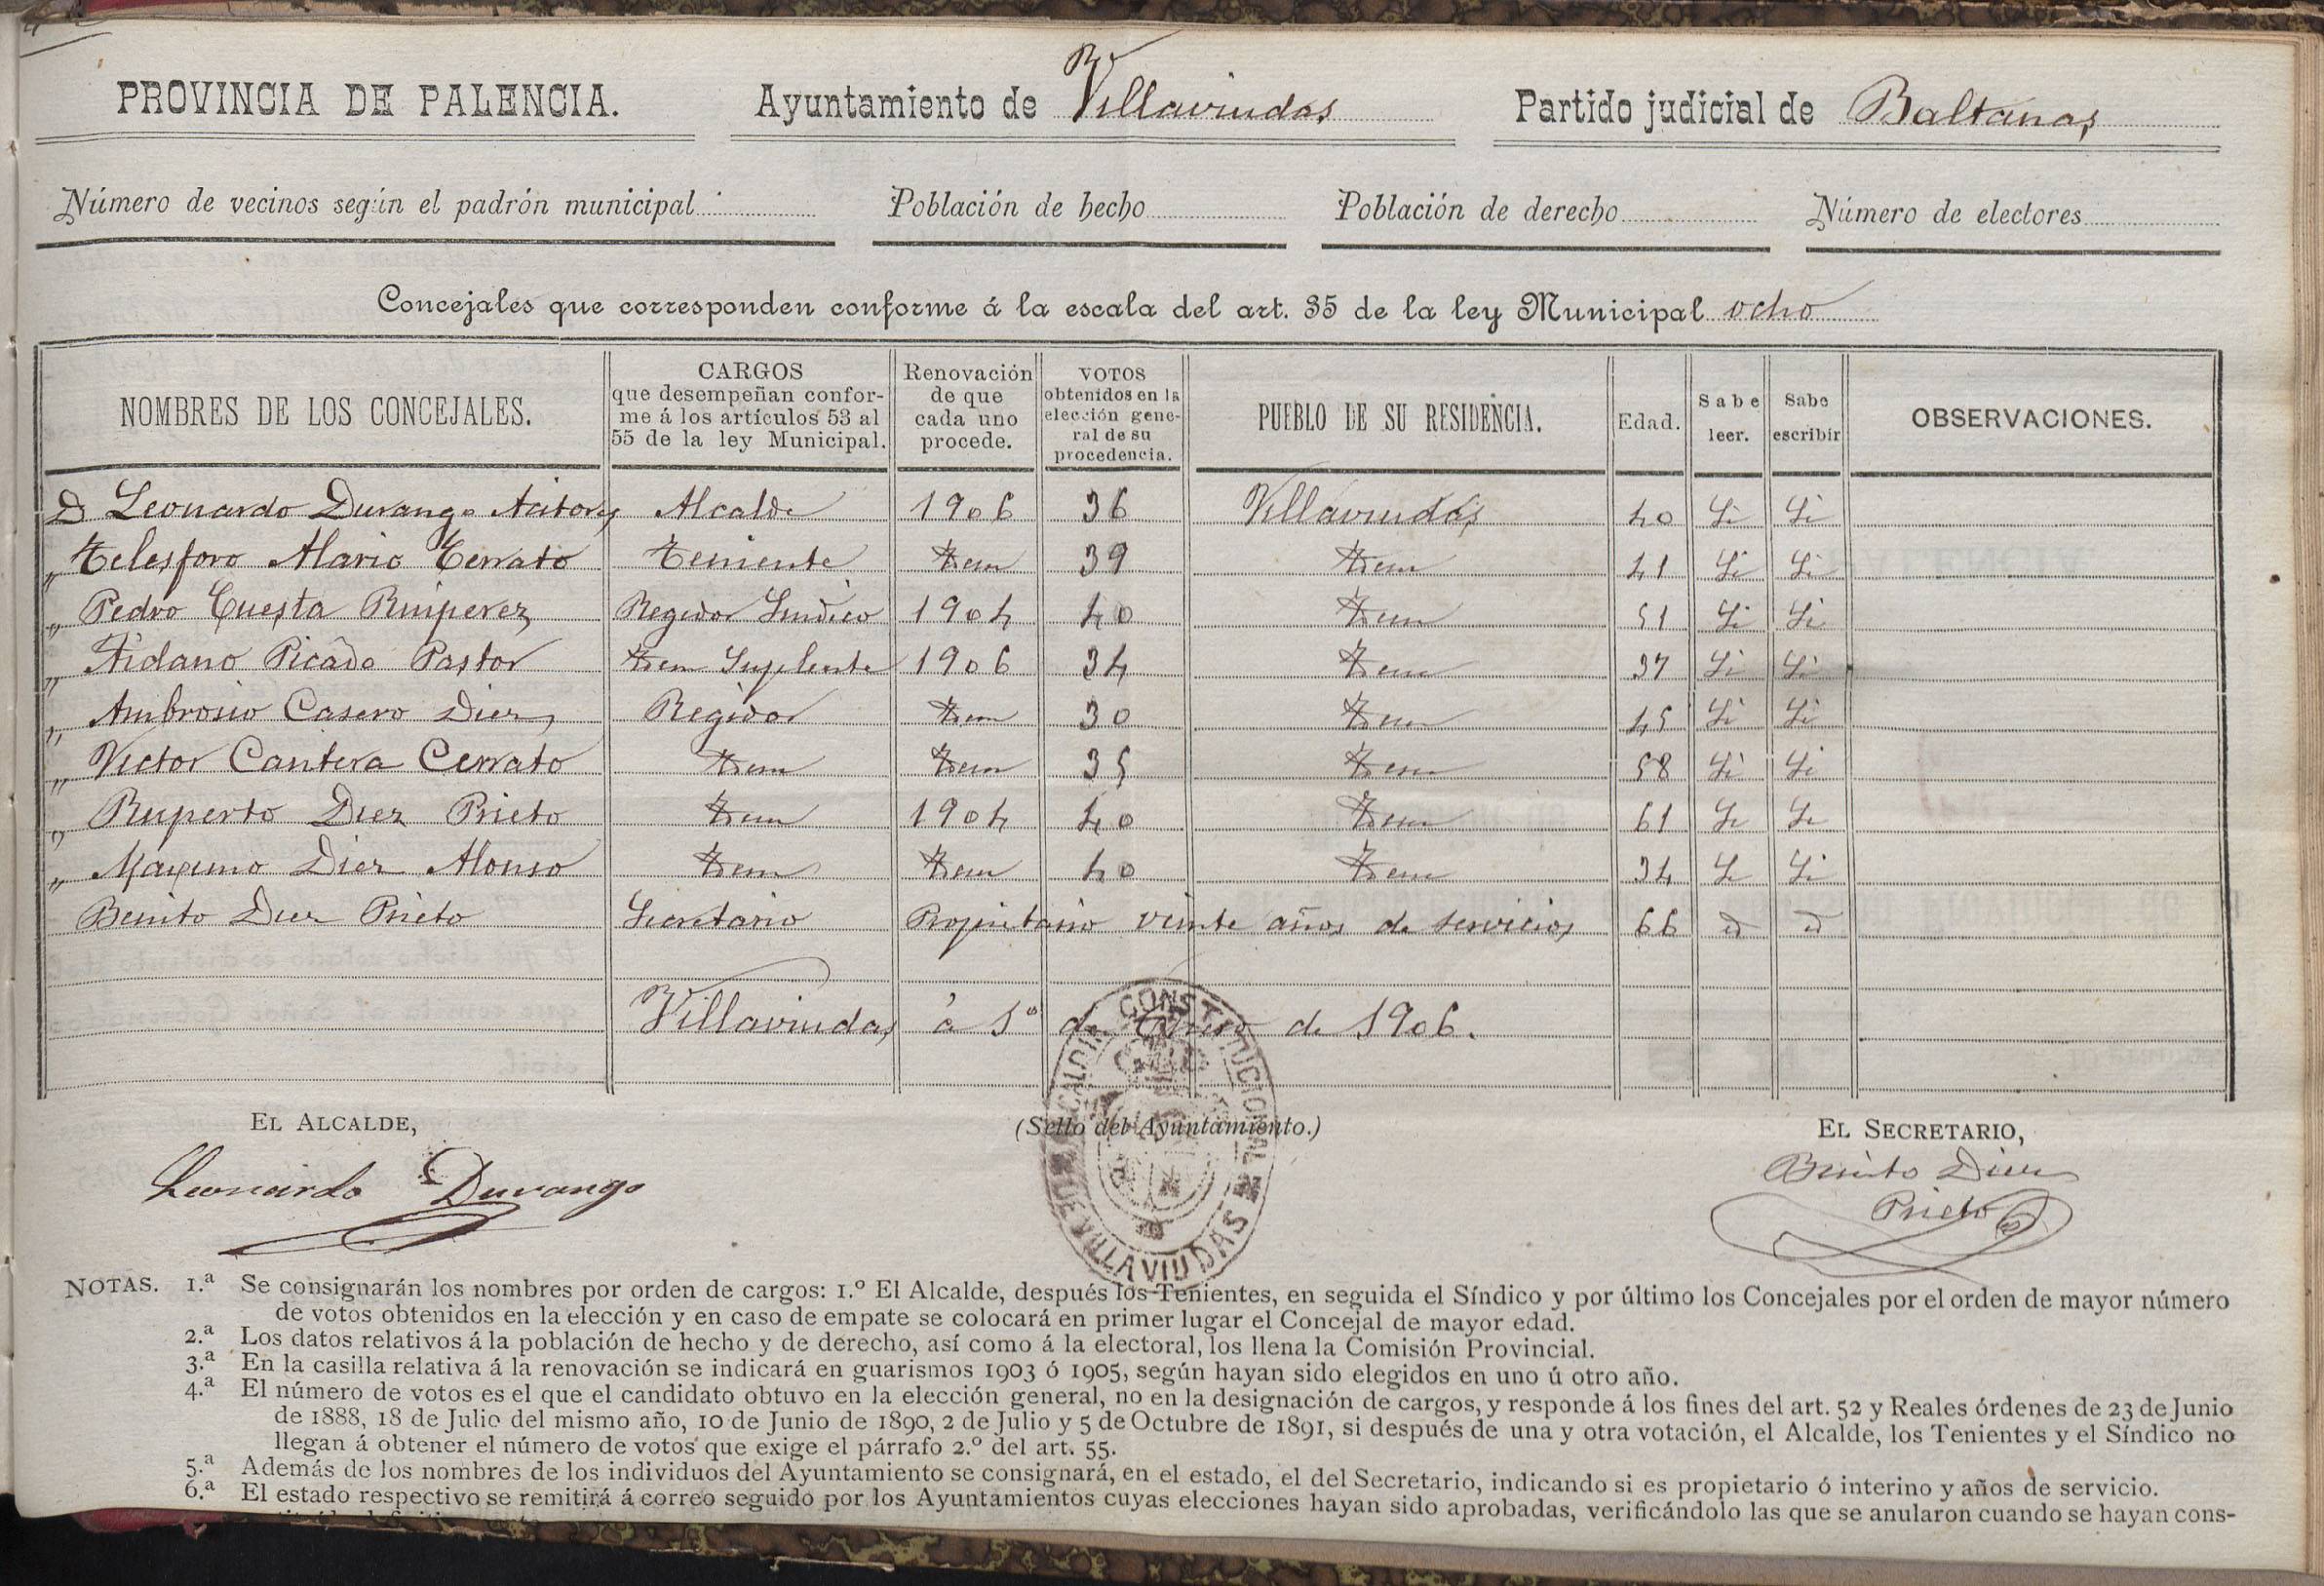 PROVINCIA DE PALENCIA. Ayuntamiento de Villaviudas Partido judicial de Baltanas
Número de vecinos según el padrón municipal Población de hecho Población de derecho Número de electores
Concejales que corresponden conforme á la escala del art. 35 de la ley Municipal ocho
NOMBRES DE LOS CONCEJALES. CARGOS que desempeñan conforme á los artículos 53 al 55 de la ley Municipal. Renovación de que cada uno procede. VOTOS obtenidos en la elección general de su procedencia. PUEBLO DE SU RESIDENCIA. Edad. Sabe leer. Sabe escribir OBSERVACIONES.
D Leonardo Durango Alcalde 1906 36 Villaviudas 40 Si Si
" Telesforo Alario Cerrato Teniente Idem 39 Idem 41 Si Si
" Pedro Cuesta Ruiperez Regidor Sindico 1904 40 Idem 51 Si Si
" Picado Pastor Idem Suplente 1906 34 Idem 37 Si Si
" Ambrosio Casero Diez Regidor Idem 30 Idem 45 Si Si
" Victor Cantera Cerrato Idem Idem 35 Idem 58 Si Si
" Ruperto Diez Prieto Idem 1904 40 Idem 61 Si Si
" Maximo Diez Alonso Idem Idem 40 Idem 34 Si Si
Benito Diez Prieto Secretario Propietario veinte años de servicios 66 id id
Villaviudas á 1º de Enero de 1906.
ALCALDIA CONSTITUCIONAL DE VILLAVIUDAS
EL ALCALDE, (Sello del Ayuntamiento.) EL SECRETARIO,
Leonardo Durango Benito Diez
Prieto
NOTAS. 1.ª Se consignarán los nombres por orden de cargos: 1.º El Alcalde, después los Tenientes, en seguida el Síndico y por último los Concejales por el orden de mayor número
de votos obtenidos en la elección y en caso de empate se colocará en primer lugar el Concejal de mayor edad.
2.ª Los datos relativos á la población de hecho y de derecho, así como á la electoral, los llena la Comisión Provincial.
3.ª En la casilla relativa á la renovación se indicará en guarismos 1903 ó 1905, según hayan sido elegidos en uno ú otro año.
4.ª El número de votos es el que el candidato obtuvo en la elección general, no en la designación de cargos, y responde á los fines del art. 52 y Reales órdenes de 23 de Junio
de 1888, 18 de Julio del mismo año, 10 de Junio de 1890, 2 de Julio y 5 de Octubre de 1891, si después de una y otra votación, el Alcalde, los Tenientes y el Síndico no
llegan á obtener el número de votos que exige el párrafo 2.º del art. 55.
5.ª Además de los nombres de los individuos del Ayuntamiento se consignará, en el estado, el del Secretario, indicando si es propietario ó interino y años de servicio.
6.ª El estado respectivo se remitirá á correo seguido por los Ayuntamientos cuyas elecciones hayan sido aprobadas, verificándolo las que se anularon cuando se hayan cons-